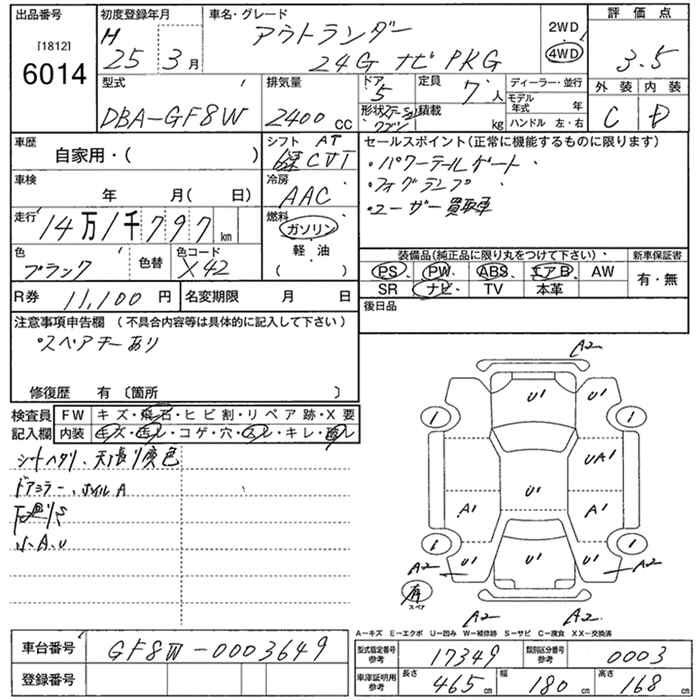 出品番号
[1812]
6014
初度登録年月
H 25 3月
車名・グレード
アウトランダー
24G ナビPKG
2WD
4WD
評価点
3.5
型式
DBA-GF8W
排気量
2400 cc
ドア
5
形状 ステーションワゴン
定員
7人
積載
kg
ディーラー・並行
モデル年式 年
ハンドル 左・右
外装 内装
C D
車歴
自家用・( )
シフト AT
CVT
セールスポイント(正常に機能するものに限ります)
・パワーテールゲート
・フォグランプ
・ユーザー買取車
車検
年 月( 日)
冷房
AAC
走行
14万1千797km
燃料
ガソリン
軽・油
( )
色
ブラック
色替
色コード
X42
装備品(純正品に限り丸をつけて下さい)
PS PW ABS エアB AW
SR ナビ TV 本革
新車保証書
有・無
R券 11,100円
名変期限 月 日
後日品
注意事項申告欄 (不具合内容等は具体的に記入して下さい)
・スペアキーあり
修復歴 有 〔箇所 〕
検査員記入欄
FW キズ・飛石・ヒビ割・リペア跡・X要
内装 キズ・汚レ・コゲ・穴・スレ・キレ・
シートヘタリ、天張り変色
ドアミラー、ホイルA
下廻りS
小A、U
A2
U1 U1
1 1
UA1
U1
A1 A1
1 1
A2 U1 U1 U1 A2
有
スペア
A2 A2
A-キズ E-エクボ U-凹み W-補修跡 S-サビ C-腐食 XX-交換済
車台番号 GF8W-0003649
登録番号
型式指定番号 参考 17349
類別区分番号 参考 0003
車庫証明用 参考
長さ 465cm 幅 180cm 高さ 168cm